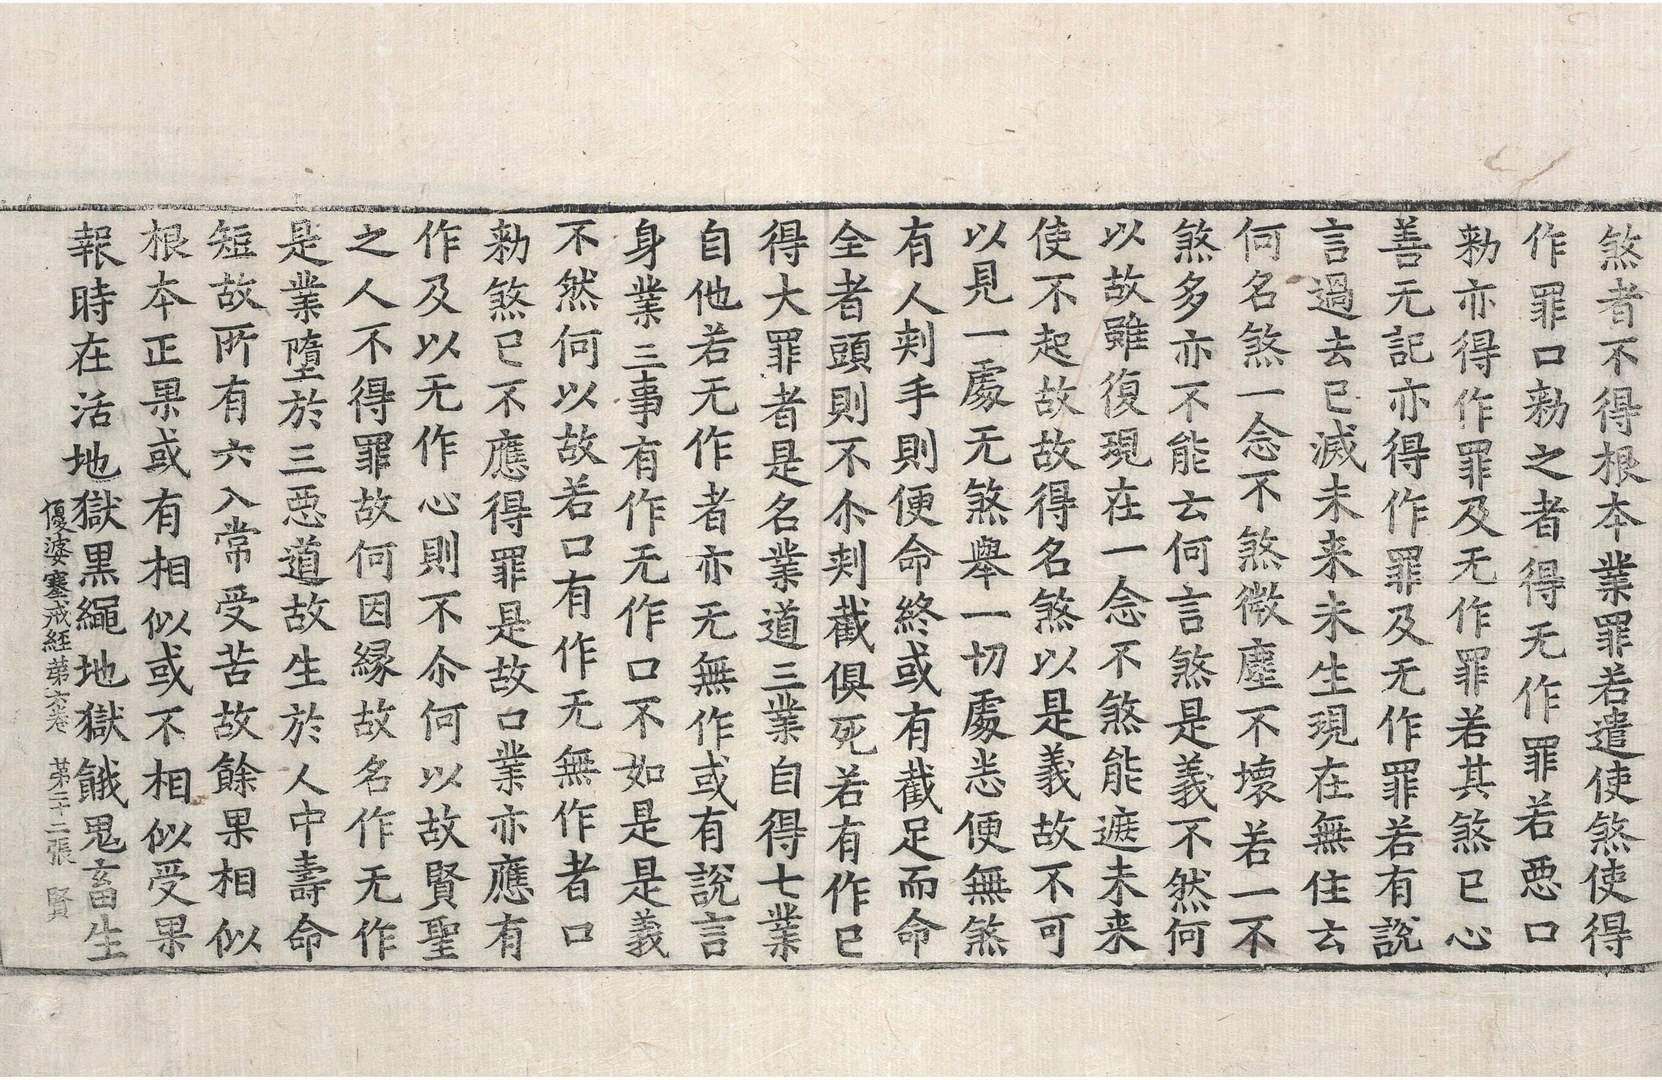 煞者不得根本業罪若遣使煞使得
作罪口勑之者得无作罪若悪口
勑亦得作罪及无作罪若其煞已心
善无記亦得作罪及无作罪若有說
言過去已滅未来未生現在無住云
何名煞一念不煞微塵不壞若一不
煞多亦不能云何言煞是義不然何
以故雖復現在一念不煞能遮未来
使不起故故得名煞以是義故不可
以見一處无煞舉一切處悉便無煞
有人刾手則便命終或有截足而命
全者頭則不尒刾截俱死若有作已
得大罪者是名業道三業自得七業
自他若无作者亦无無作或有說言
身業三事有作无作口不如是是義
不然何以故若口有作无無作者口
勑煞已不應得罪是故口業亦應有
作及以无作心則不尒何以故賢聖
之人不得罪故何因縁故名作无作
是業墮於三悪道故生於人中壽命
短故所有六入常受苦故餘果相似
根本正果或有相似或不相似受果
報時在活地獄黒繩地獄餓鬼畜生
優婆塞戒経第六卷 第三十二張 賢